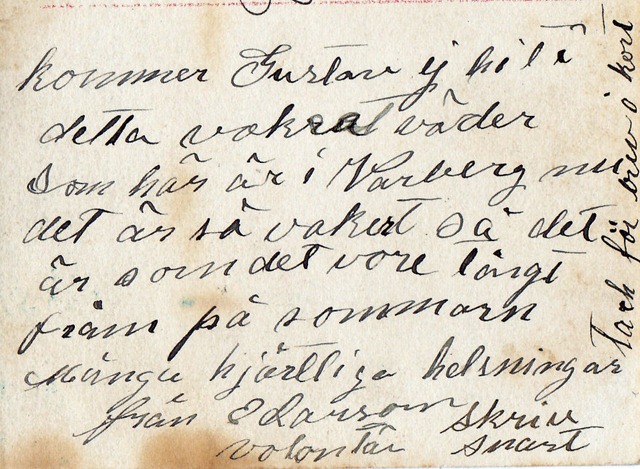 kommer Gustav ej hit i
detta vakrat väder
som här är i Varberg nu
det är så vakert så det
är som det vore långt
fram på sommarn
Många hjärtliga helsningar
från E Larsson
volontär
skriv
snart
Tack för brev o kort